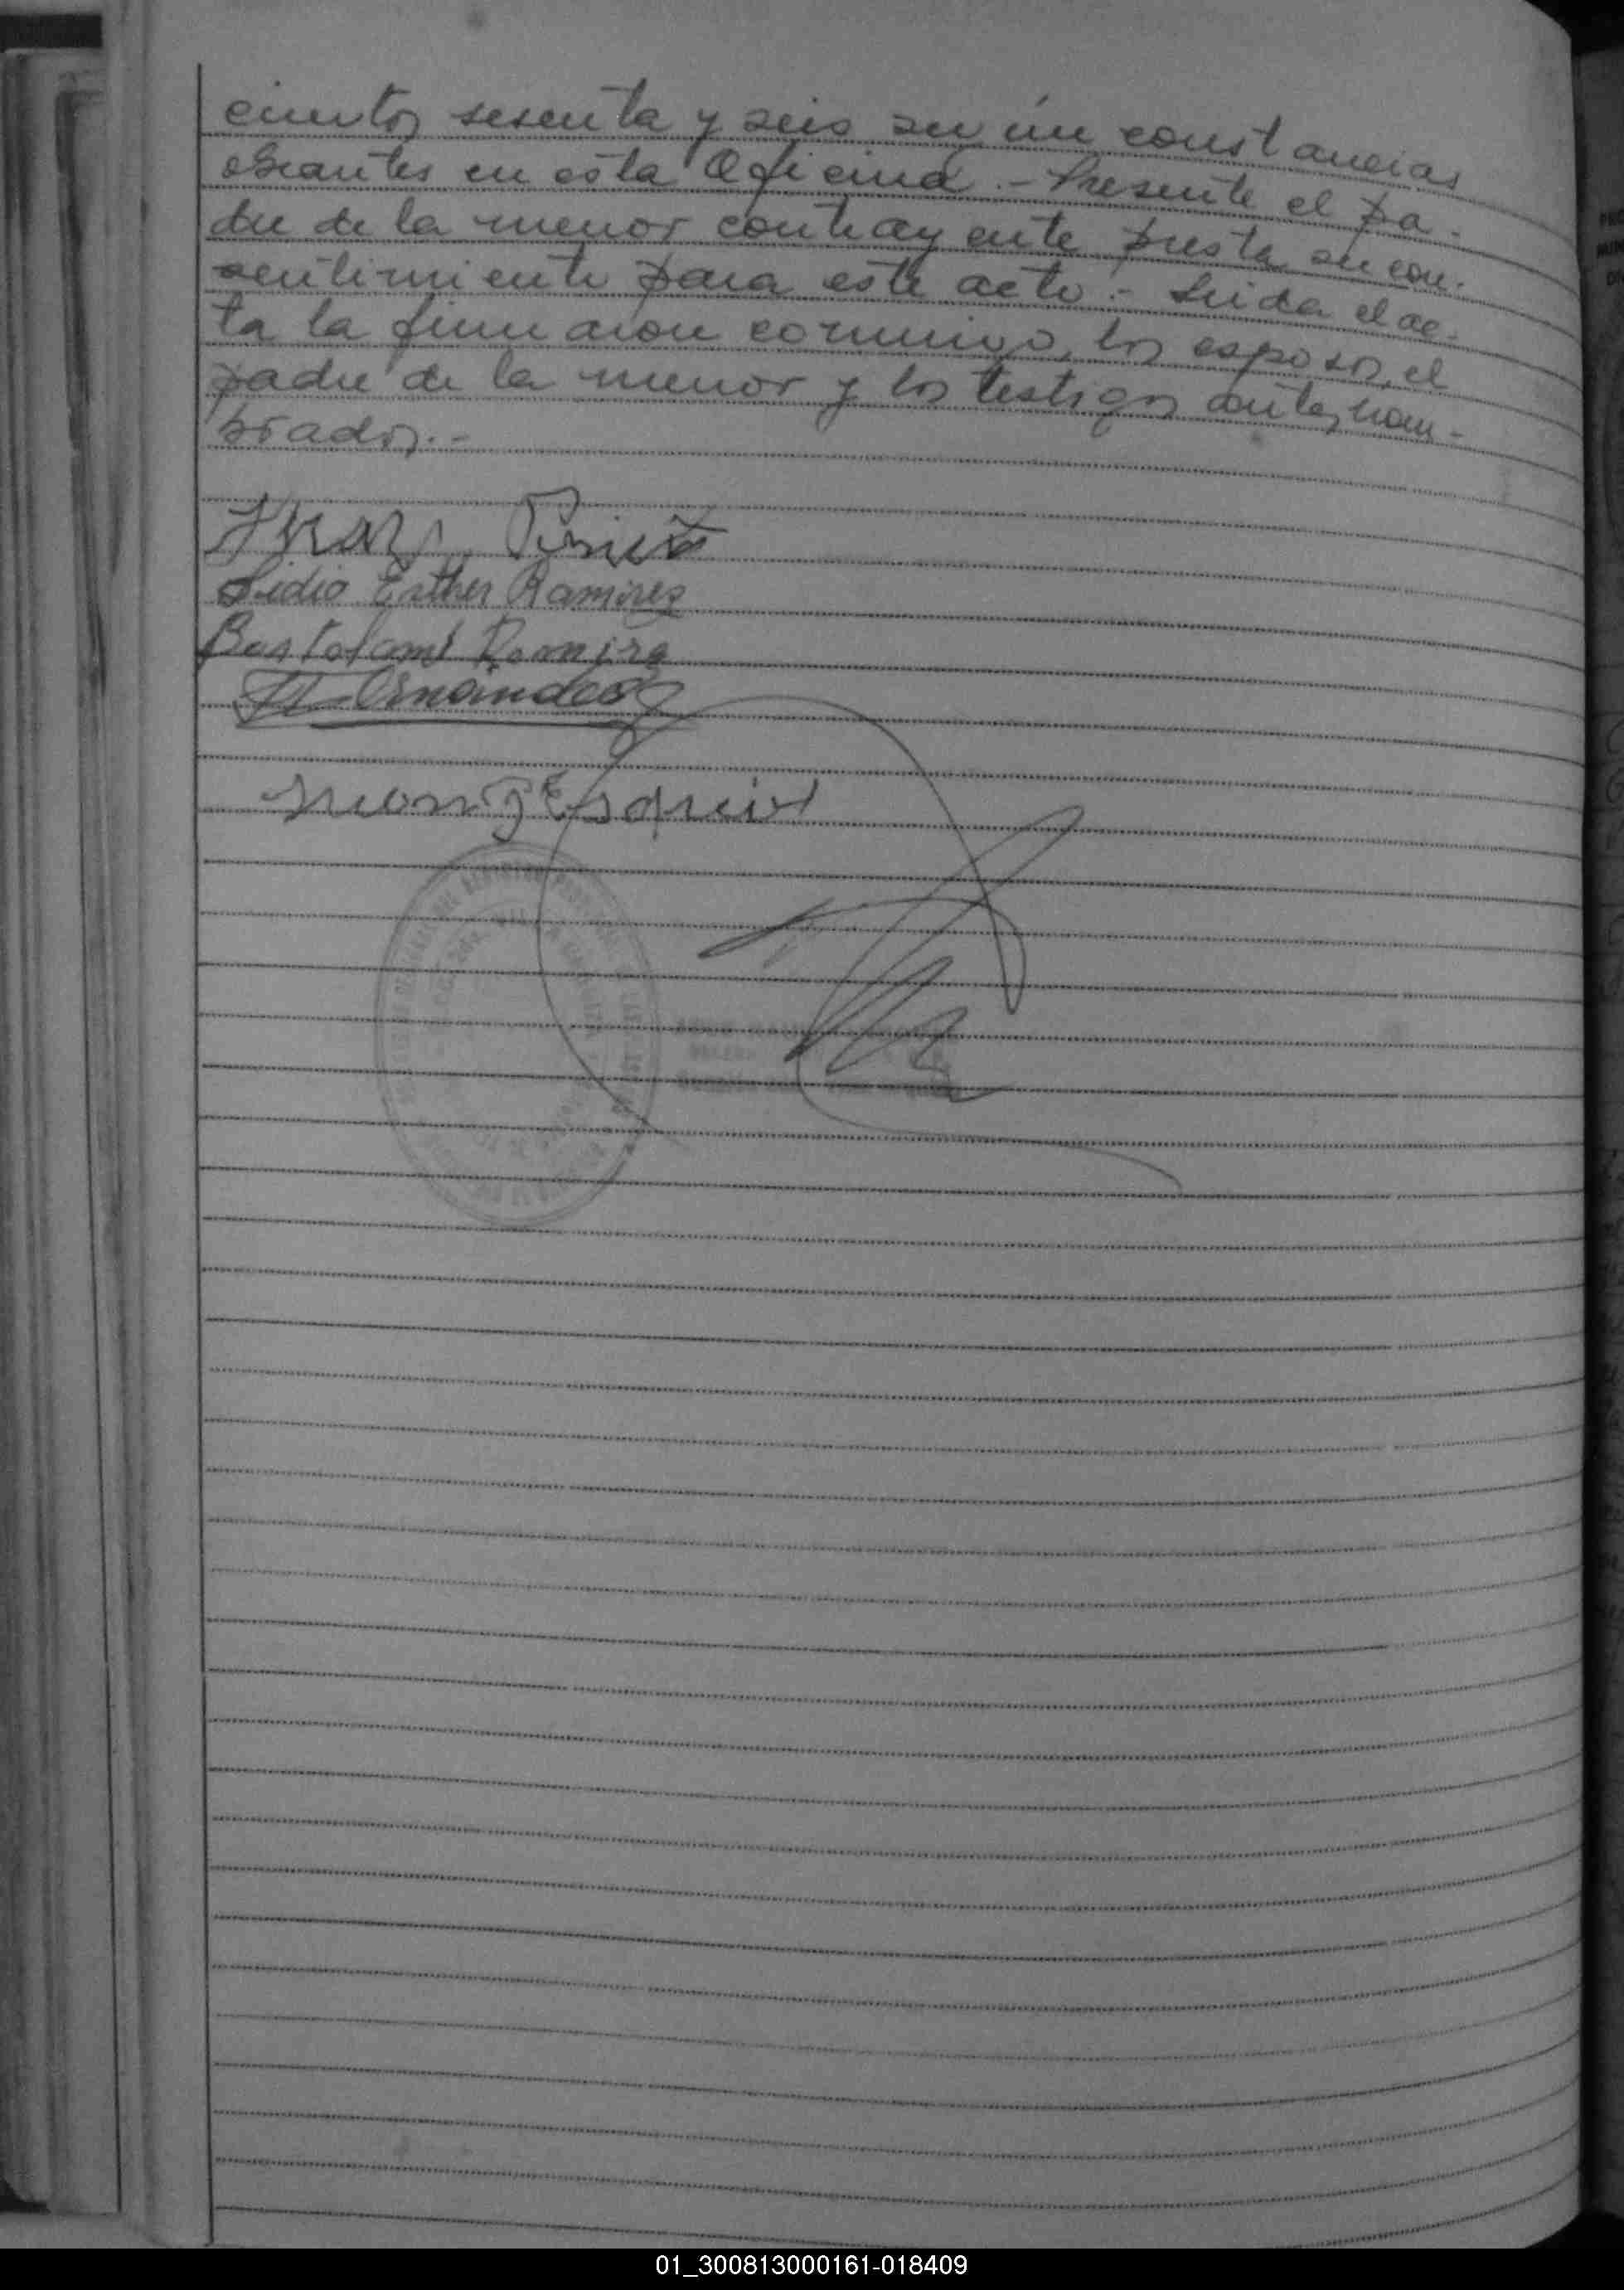 cientos sesenta y seis según constancias
obrantes en esta Oficina.- Presente el pa-
dre de la menor contrayente presta su con-
sentimiento para este acto.- Leida el ac-
ta la firmaron conmigo, los esposos, el
padre de la menor y los testigos antes nom-
brados.-
Lidia Esther Ramirez
Bartolomé Ramirez
Fernandez
01_300813000161-018409